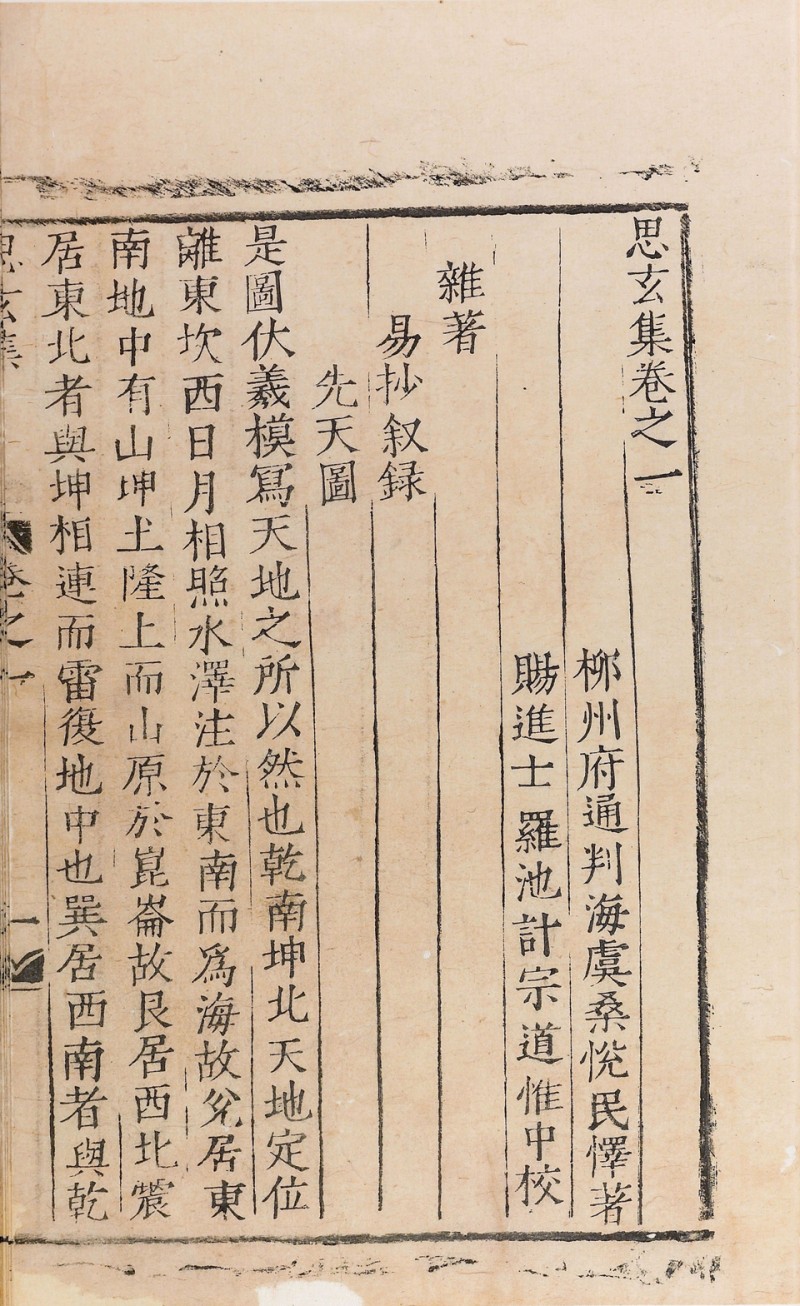 思玄集卷之一
柳州府通判海虞桑悅民懌著
賜進士羅池計宗道惟中校
雜著
易抄叙録
先天圖
是圖伏羲模寫天地之所以然也乾南坤北天地定位
離東坎西日月相照水澤注於東南而爲海故兌居東
南地中有山坤土隆上而山原於崑崙故艮居西北震
居東北者與坤相連而雷復地中也巽居西南者與乾
思玄集 卷之一 一